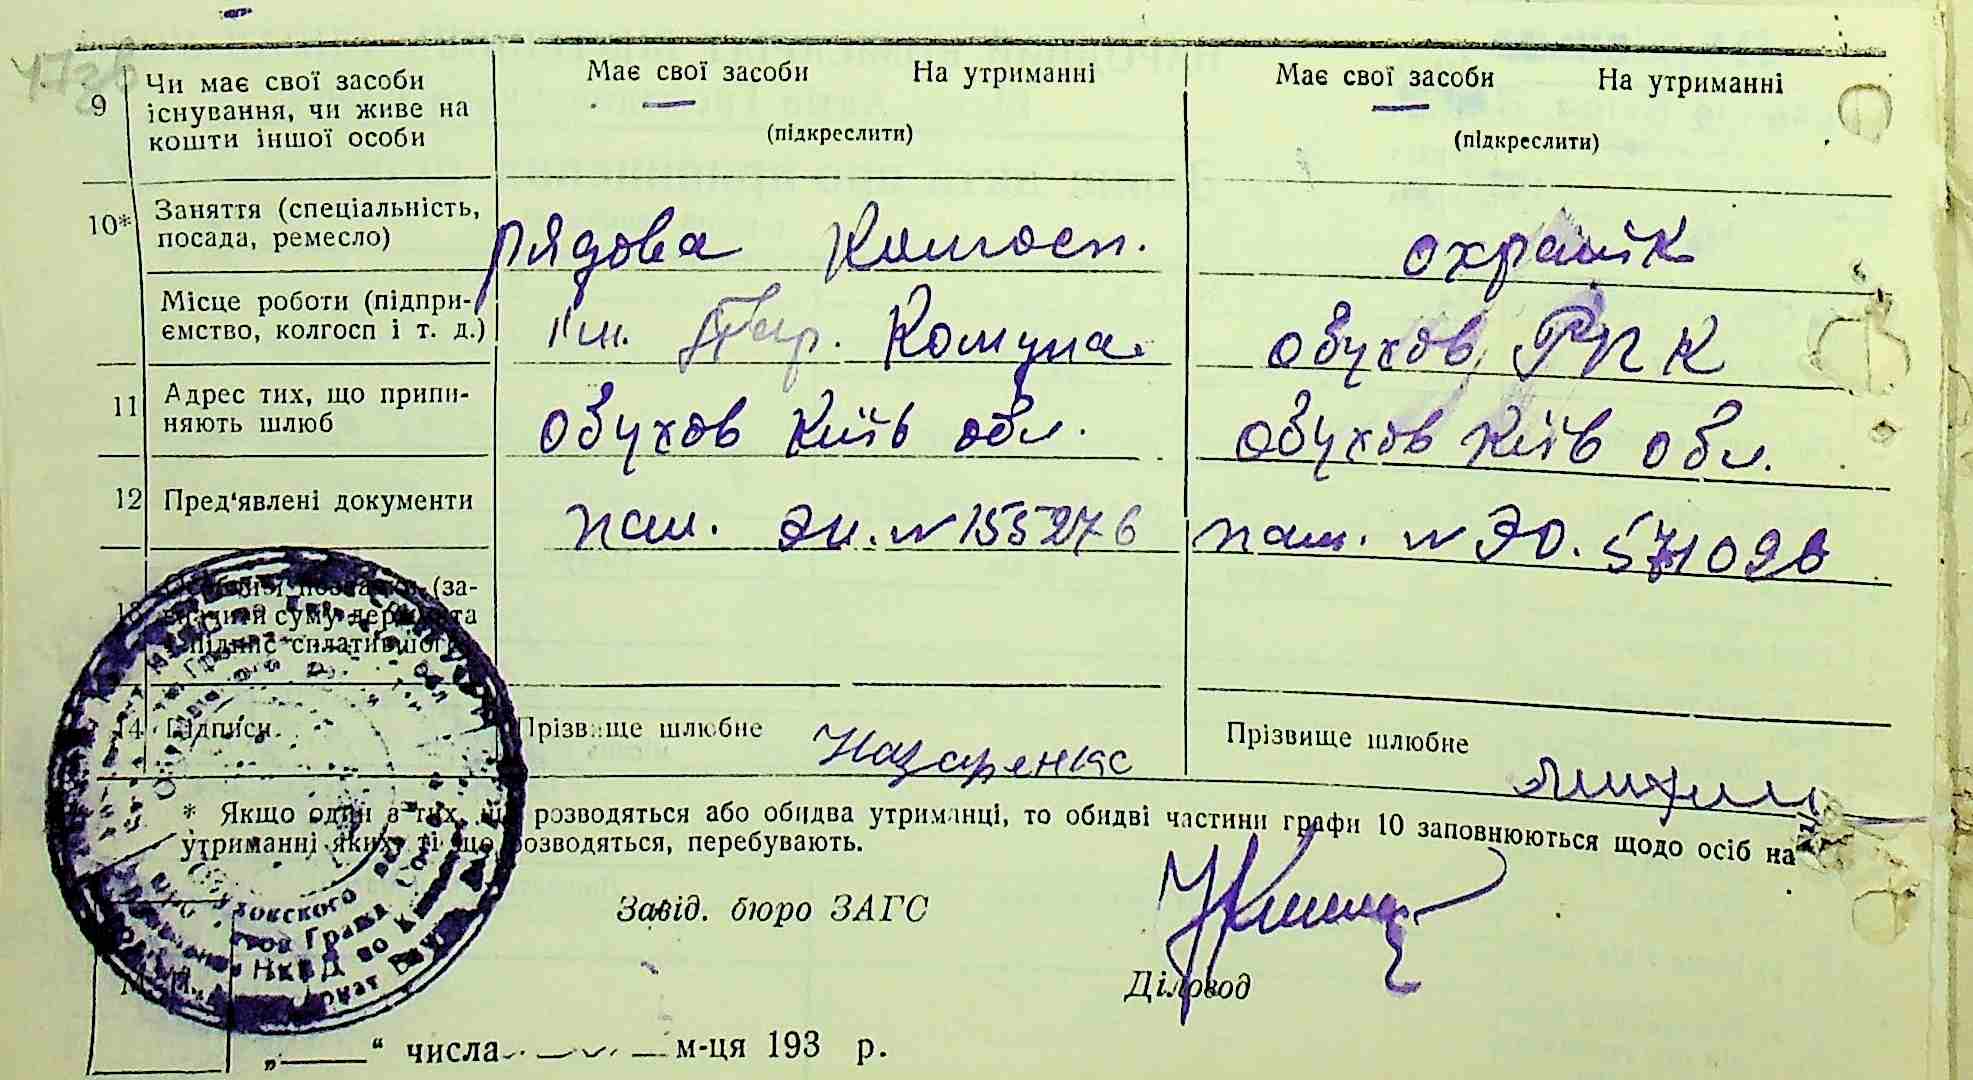 9 Чи має свої засоби існування, чи живе на кошти іншої особи
Має свої засоби На утриманні
(підкреслити)
Має свої засоби На утриманні
(підкреслити)
10* Заняття (спеціальність, посада, ремесло)
рядова колгосп.
охранік
Місце роботи (підприємство, колгосп і т. д.)
ім. Пар. Комуна
обухов РПК
11 Адрес тих, що припиняють шлюб
обухов Київ обл.
обухов Київ обл.
12 Пред'явлені документи
паш. ЭН. № 155276
паш. № ЭО. 571096
13 (зазначити суму держмита підпис сплатившого
14 Підписи
Прізвище шлюбне Назаренко
Прізвище шлюбне
* Якщо один з тих, що розводяться або обидва утриманці, то обидві частини графи 10 заповнюються щодо осіб на
утриманні яких ті що розводяться, перебувають.
Завід. бюро ЗАГС
Діловод
М. П.
„ “ числа м-ця 193 р.